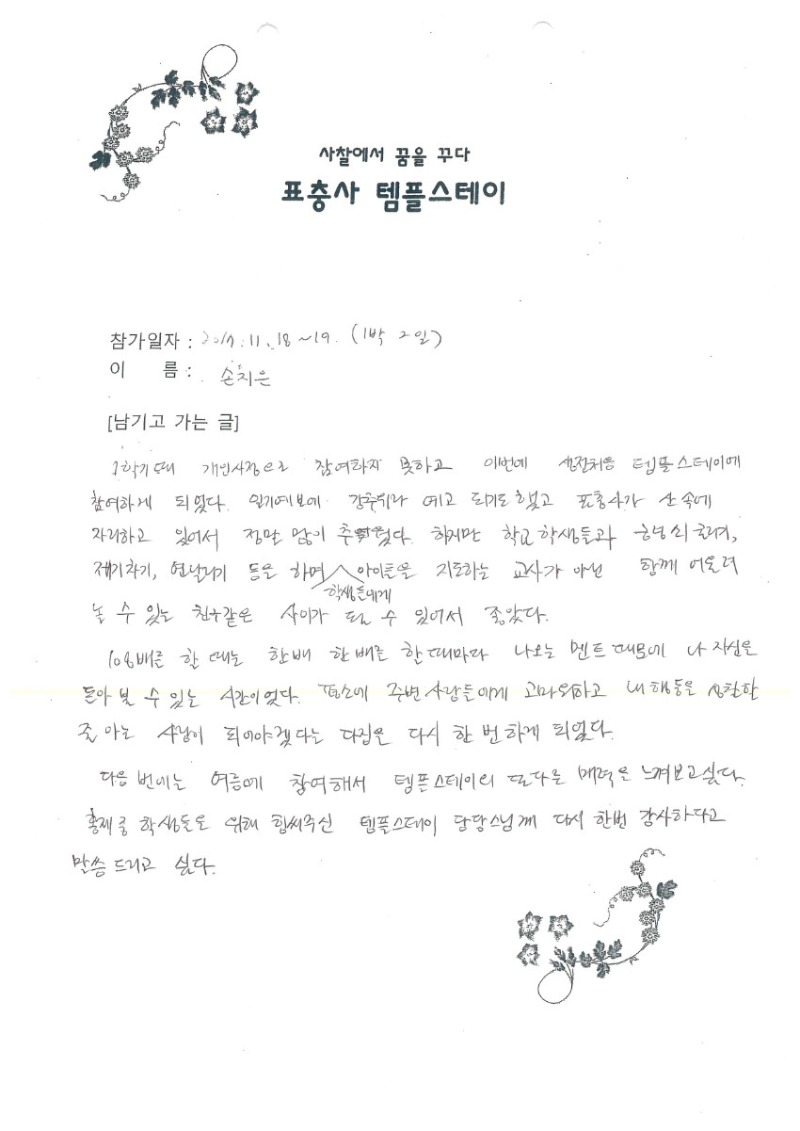 사찰에서 꿈을 꾸다
표충사 템플스테이
참가일자 : 2017. 11. 18 ~19. (1박 2일)
이 름 : 손지은
[남기고 가는 글]
1학기때 개인사정으로 참여하지 못하고 이번에 생전처음 템플스테이에
참여하게 되었다. 일기예보에 강추위라 예고 되기도 했고 표충사가 산 속에
자리하고 있어서 정말 많이 추웠다. 하지만 학교 학생들과
제기차기, 연날리기 등을 하며 학생들에게 아이들을 지도하는 교사가 아닌 함께 어울려
놀 수 있는 친구같은 사이가 될 수 있어서 좋았다.
108배를 할 때는 한배 한배를 할때마다 나오는 멘트 때문에 나 자신을
돌아 볼 수 있는 시간이었다. 평소에 주변 사람들에게 고마워하고 내 행동을 성찰할
줄 아는 사람이 되어야겠다는 다짐을 다시 한 번 하게 되었다.
다음 번에는 여름에 참여해서 템플스테이의 또다른 매력을 느껴보고싶다.
홍제중 학생들을 위해 힘써주신 템플스테이 담당스님께 다시 한번 감사하다고
말씀 드리고 싶다.